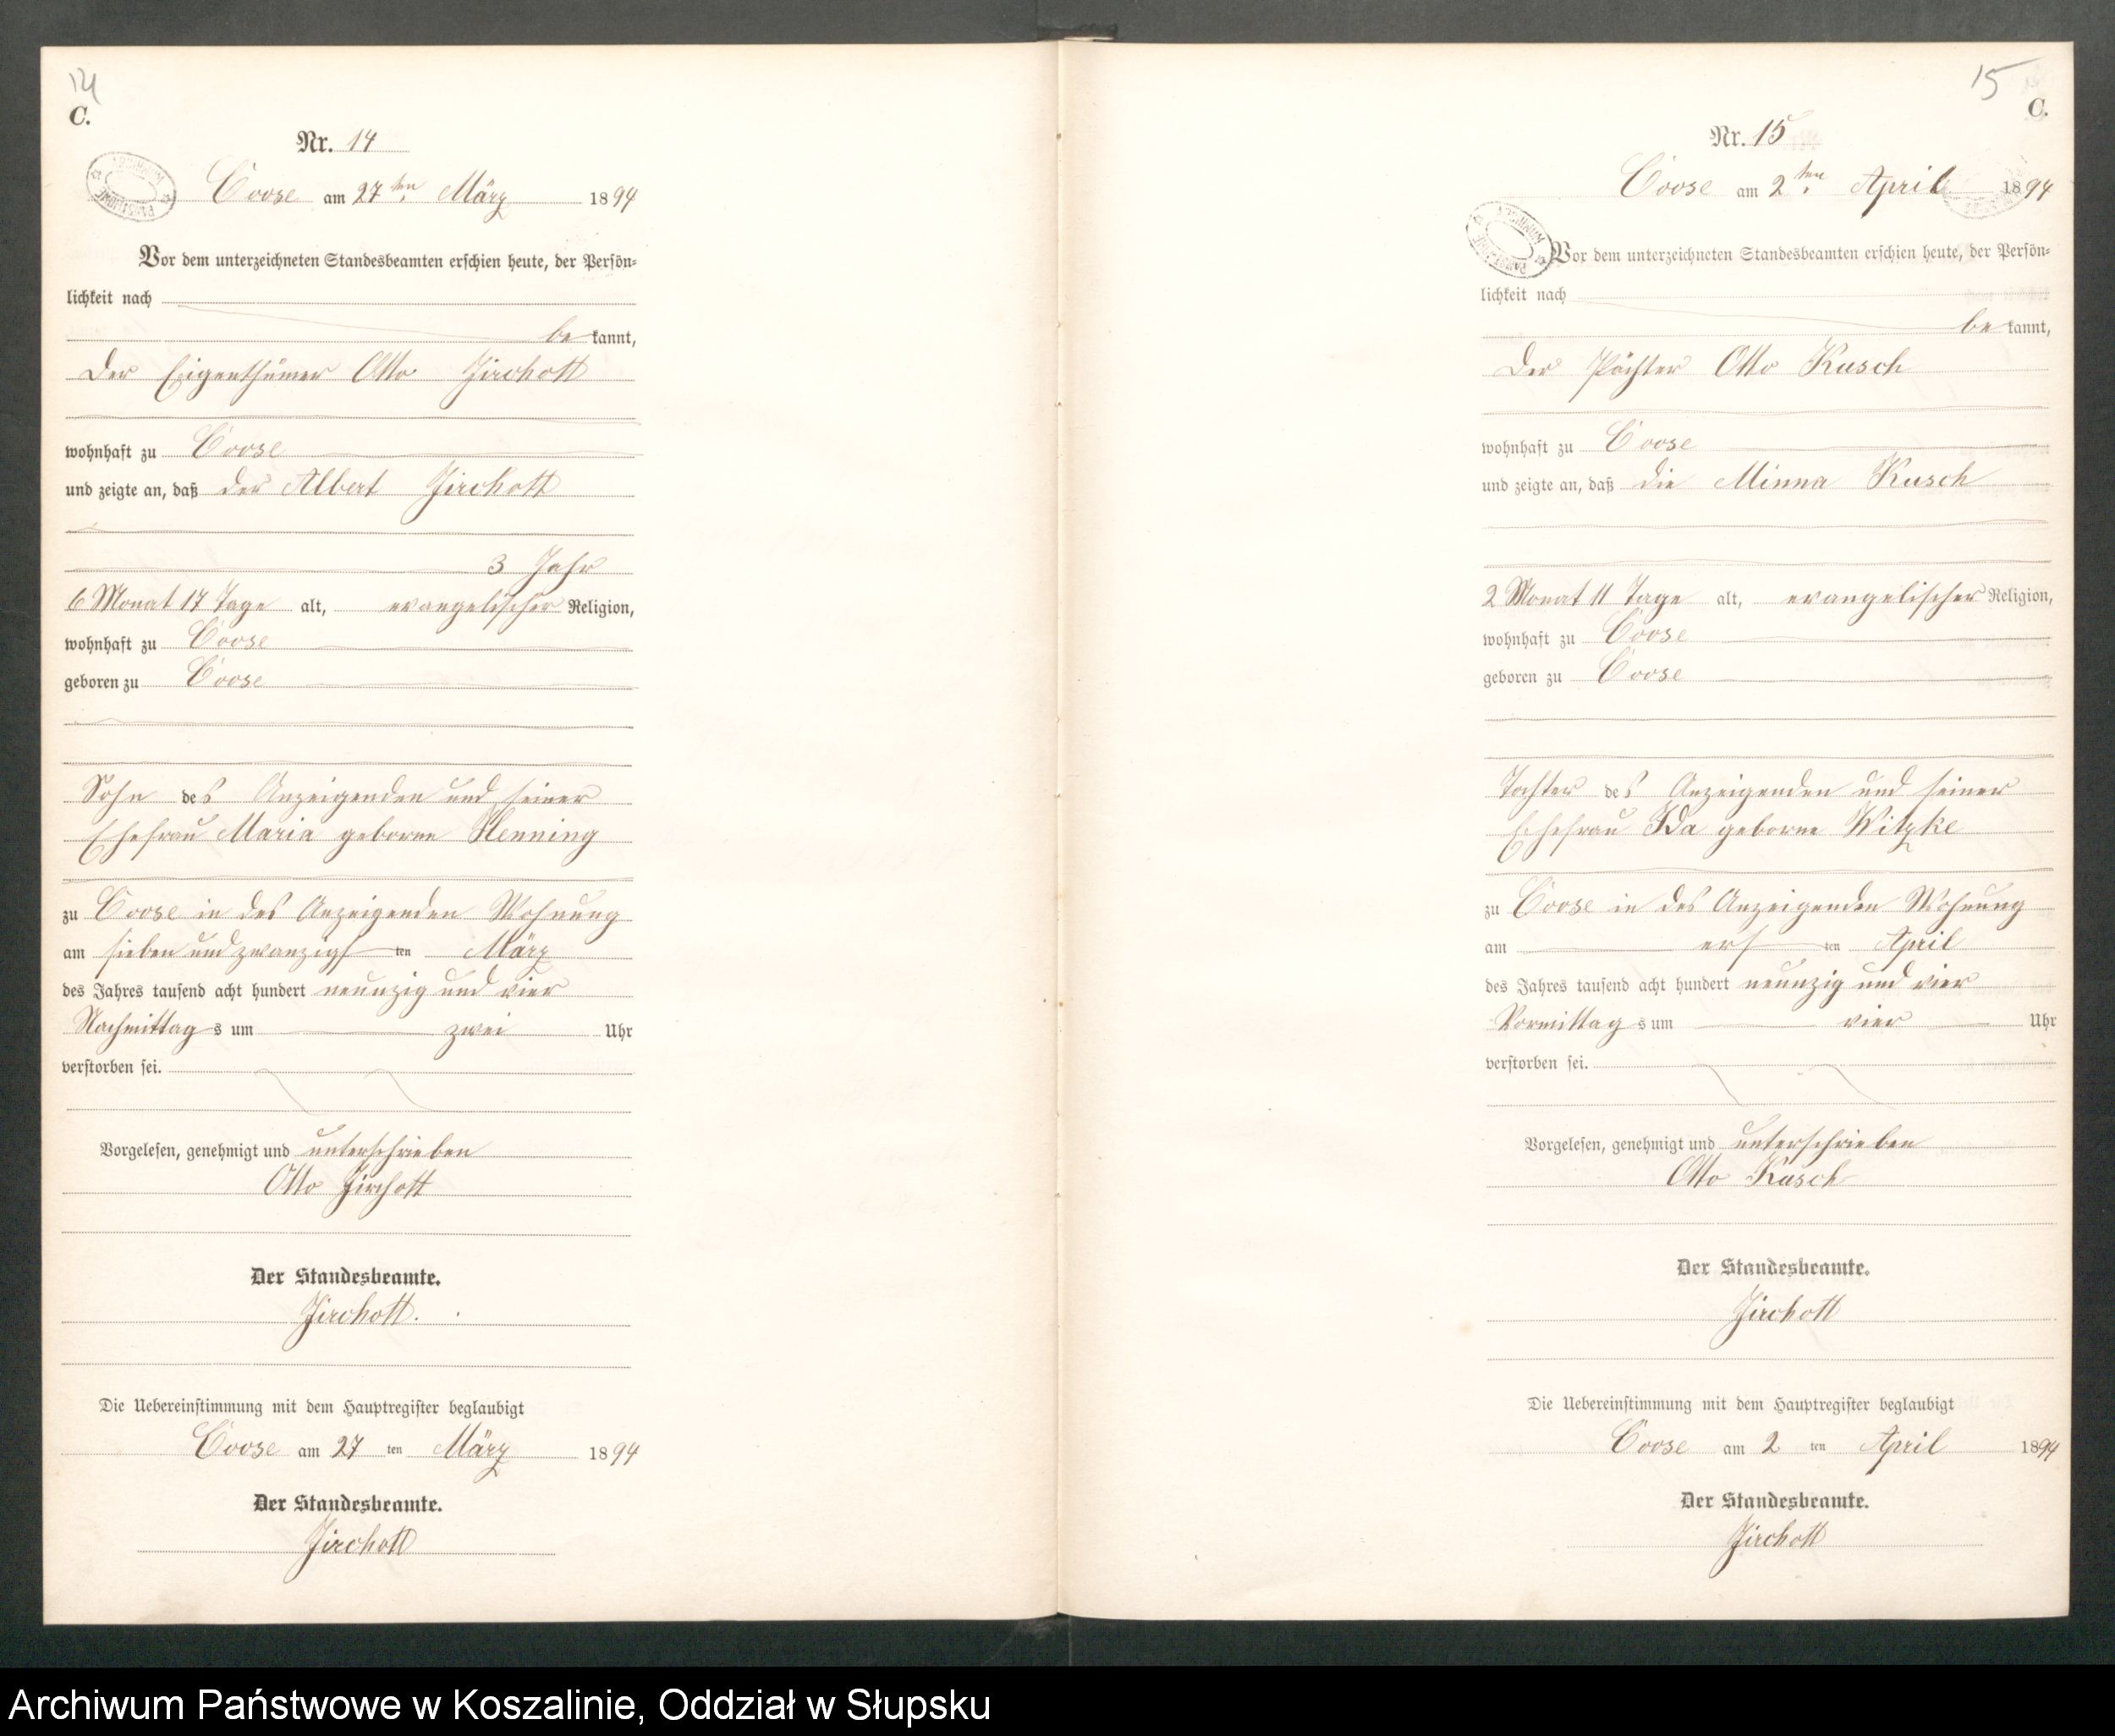 14
C.
Nr. 14
Coose am 27ten März 1894
Vor dem unterzeichneten Standesbeamten erschien heute, der Persön-
lichkeit nach
be kannt,
der Eigenthümer Otto Jirchott
wohnhaft zu Coose
und zeigte an, daß der Albert Jirchott
3 Jahr
6 Monat 17 Tage alt, evangelischer Religion,
wohnhaft zu Coose
geboren zu Coose
Sohn des Anzeigenden und seiner
Ehefrau Maria geborne Henning
zu Coose in des Anzeigenden Wohnung
am sieben und zwanzigsten März
des Jahres tausend acht hundert neunzig und vier
Nachmittags um zwei Uhr
verstorben sei.
Vorgelesen, genehmigt und unterschrieben
Otto Jirchott
Der Standesbeamte.
Jirchott.
Die Uebereinstimmung mit dem Hauptregister beglaubigt
Coose am 27 ten März 1894
Der Standesbeamte.
Jirchott
15
C.
Nr. 15
Coose am 2ten April 1894
Vor dem unterzeichneten Standesbeamten erschien heute, der Persön-
lichkeit nach
be kannt,
der Pächter Otto Kusch
wohnhaft zu Coose
und zeigte an, daß die Minna Kusch
2 Monat 11 Tage alt, evangelischer Religion,
wohnhaft zu Coose
geboren zu Coose
Tochter des Anzeigenden und seiner
Ehefrau Ida geborne Witzke
zu Coose in des Anzeigenden Wohnung
am ersten April
des Jahres tausend acht hundert neunzig und vier
Vormittags um vier Uhr
verstorben sei.
Vorgelesen, genehmigt und unterschrieben
Otto Kusch
Der Standesbeamte.
Jirchott
Die Uebereinstimmung mit dem Hauptregister beglaubigt
Coose am 2 ten April 1894
Der Standesbeamte.
Jirchott
Archiwum Państwowe w Koszalinie, Oddział w Słupsku